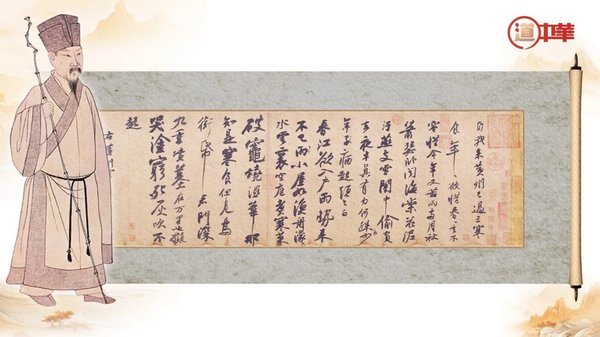 道中華
自我来黄州已過三寒
食年〻欲惜春〻去不
容惜今年又苦雨兩月秋
蕭瑟卧聞海棠花泥
污燕支雪闇中偷負
去夜半真有力何殊少
年子病起頭已白
春江欲入户雨勢来
不已雨小屋如漁舟濛〻
水雲裏空庖煮寒菜
破竈燒濕葦那
知是寒食但見烏
銜帋君門深
九重墳墓在万里也擬
哭塗窮死灰吹不
起